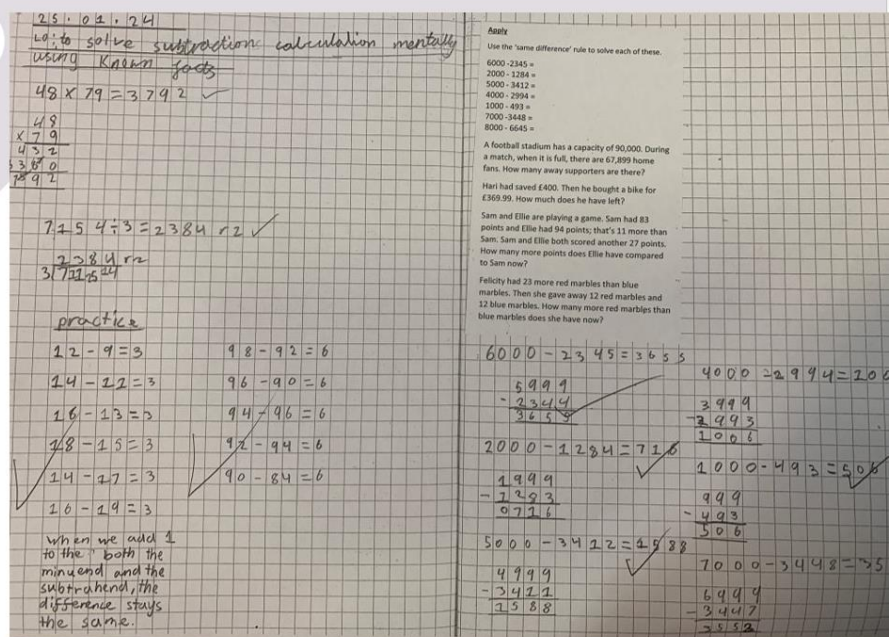 25.01.24
Lo: to solve subtraction calculation mentally
using Known facts
48 x 79 = 3792 ✓
48
x 79
432
3360
3792
7154 ÷ 3 = 2384 r2 ✓
2384 r2
practice
12 - 9 = 3
14 - 11 = 3
16 - 13 = 3
18 - 15 = 3
14 - 17 = 3
16 - 19 = 3
when we add 1
to the both the
minuend and the
subtrahend, the
difference stays
the same.
98 - 92 = 6
96 - 90 = 6
94 - 96 = 6
92 - 94 = 6
90 - 84 = 6
Apply
Use the 'same difference' rule to solve each of these.
6000 -2345 =
2000 - 1284 =
5000 - 3412 =
4000 - 2994 =
1000 - 493 =
7000 -3448 =
8000 - 6645 =
A football stadium has a capacity of 90,000. During
a match, when it is full, there are 67,899 home
fans. How many away supporters are there?
Hari had saved £400. Then he bought a bike for
£369.99. How much does he have left?
Sam and Ellie are playing a game. Sam had 83
points and Ellie had 94 points; that's 11 more than
Sam. Sam and Ellie both scored another 27 points.
How many more points does Ellie have compared
to Sam now?
Felicity had 23 more red marbles than blue
marbles. Then she gave away 12 red marbles and
12 blue marbles. How many more red marbles than
blue marbles does she have now?
6000 - 2345 = 3655
5999
- 2344
3655
2000 - 1284 = 716
1999
- 1283
0716
5000 - 3412 = 1588
4999
- 3411
1588
4000 - 2994 = 100
3999
- 2993
1006
1000 - 493 = 506
999
- 493
506
7000 - 3448 = 35
6999
- 3447
3552